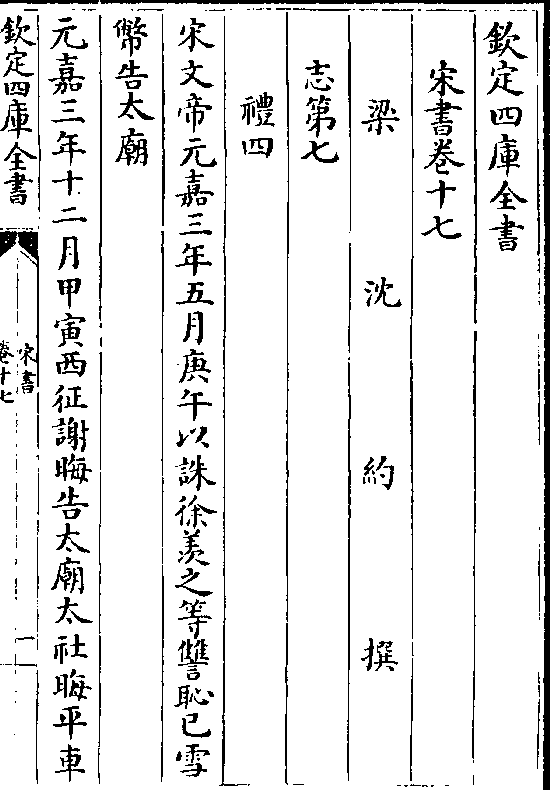 欽定四庫全書
宋書卷十七
梁沈約撰
志第七
禮四
宋文帝元嘉三年五月庚午以誅徐羨之等讐恥已雪
幣告太廟
元嘉三年十二月甲寅西征謝晦告太廟太社晦平車
欽定四庫全書
宋書
卷十七
一